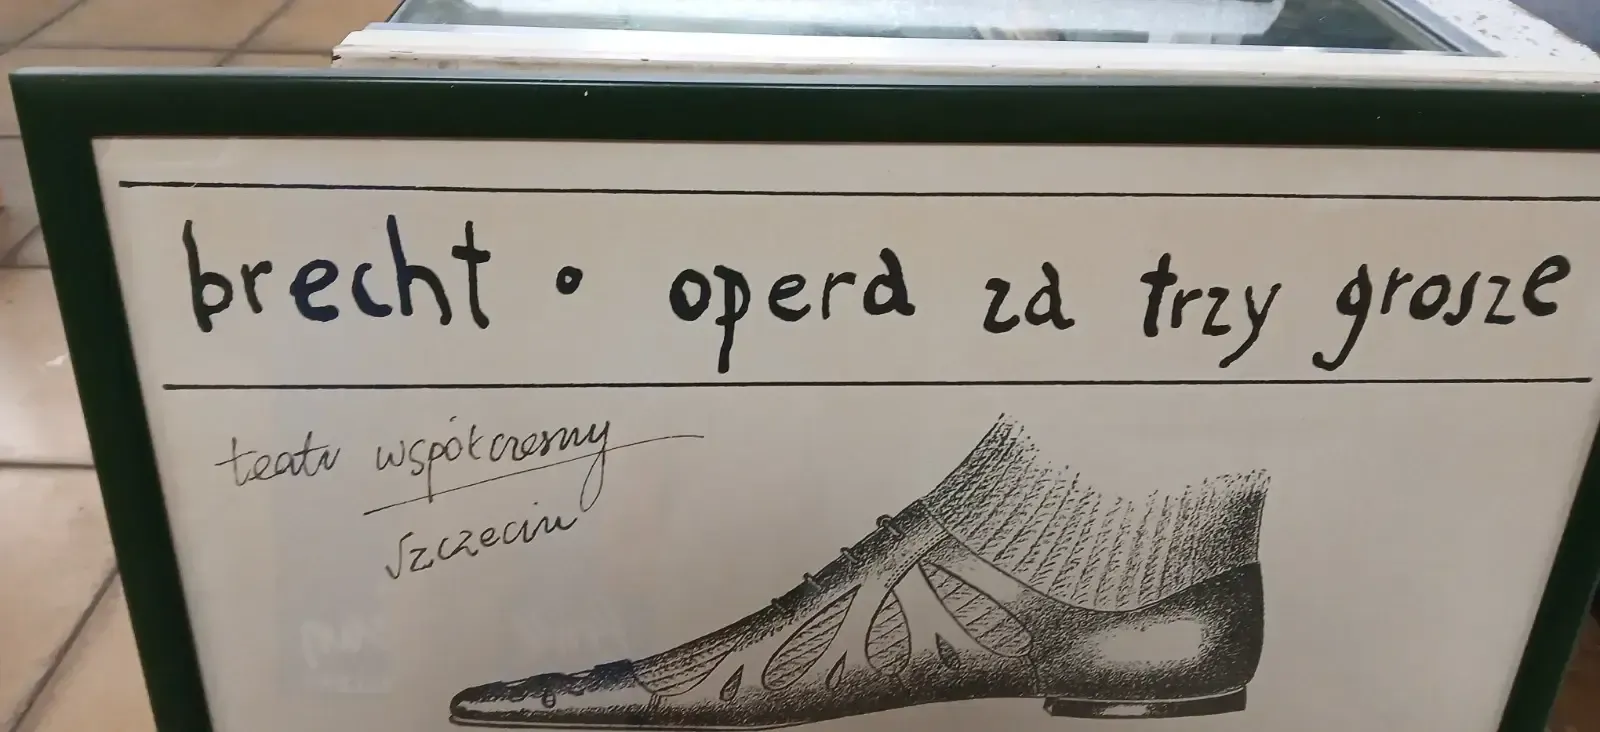 brecht • opera za trzy grosze
teatr współczesny
szczecin